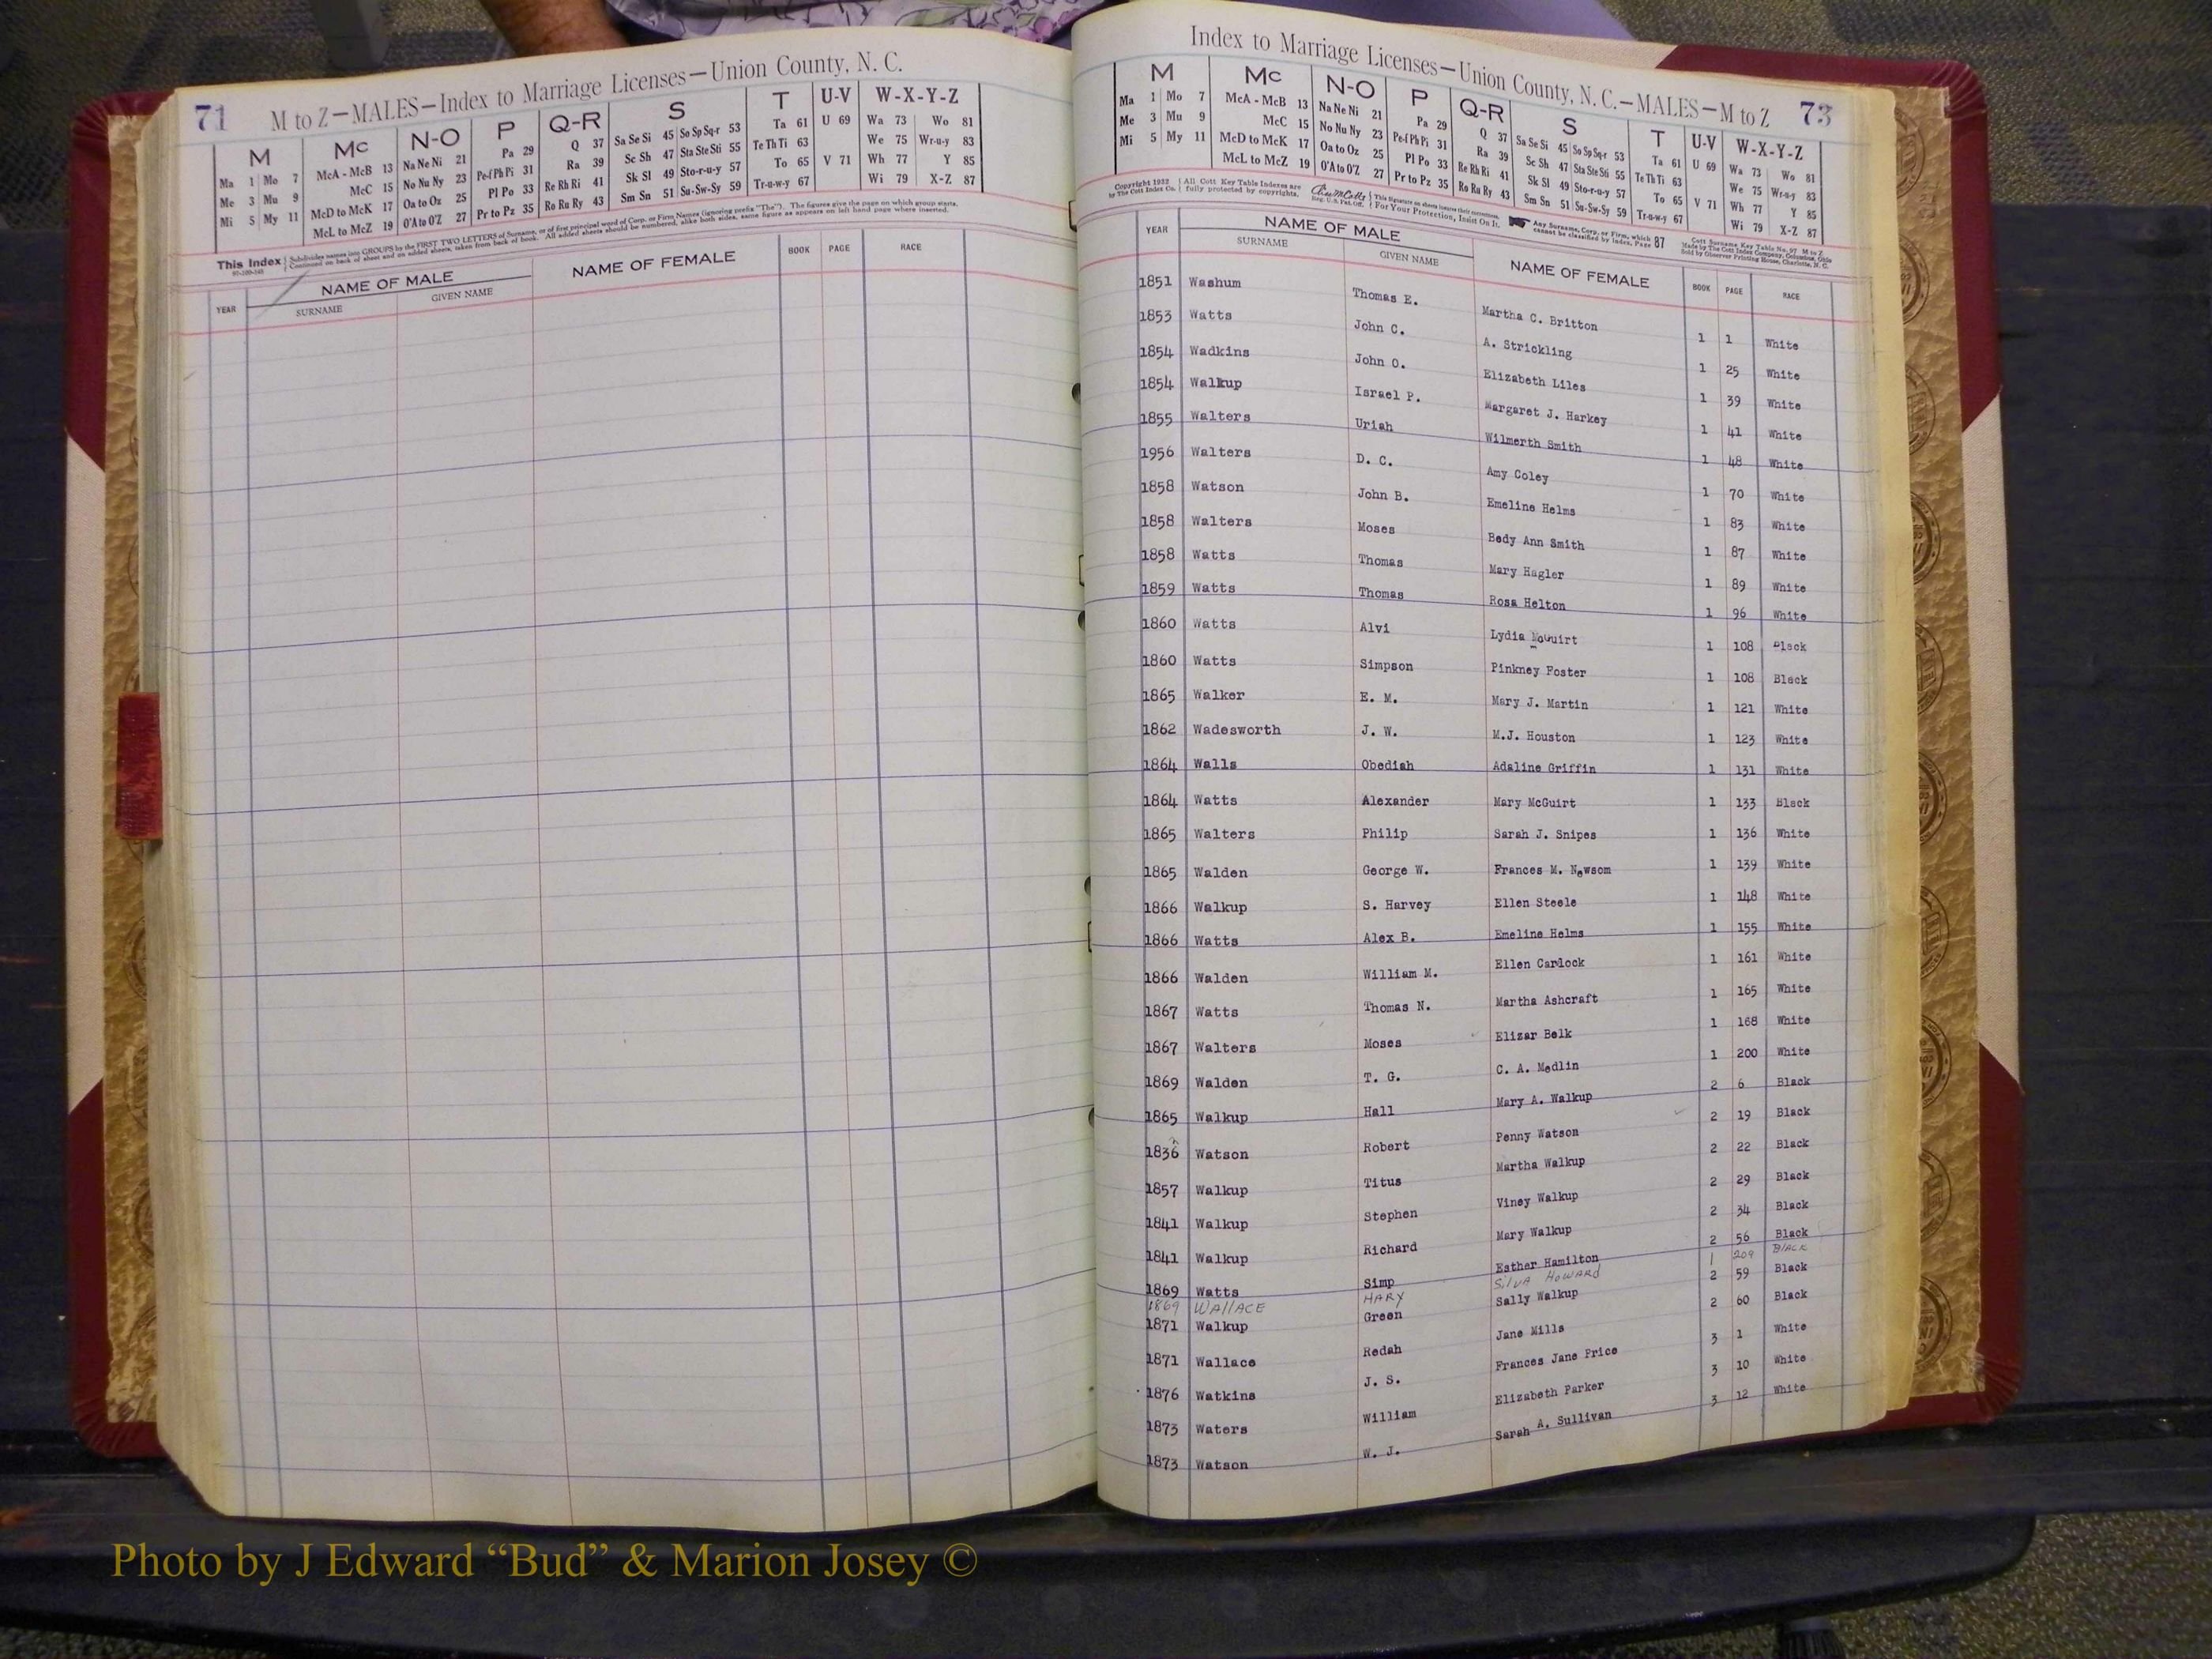 71 M to Z—MALES—Index to Marriage Licenses—Union County, N. C.
M Mc N-O P Q-R S T U-V W-X-Y-Z
Ma 1 Mo 7 McA - McB 13 Na Ne Ni 21 Pa 29 Q 37 Sa Se Si 45 So Sp Sq-r 53 Ta 61 U 69 Wa 73 Wo 81
Me 3 Mu 9 McC 15 No Nu Ny 23 Pe-f Ph Pi 31 Ra 39 Sc Sh 47 Sta Ste Sti 55 Te Th Ti 63 We 75 Wr-u-y 83
Mi 5 My 11 McD to McK 17 Oa to Oz 25 Pl Po 33 Re Rh Ri 41 Sk Sl 49 Sto-r-u-y 57 To 65 V 71 Wh 77 Y 85
McL to McZ 19 O'A to O'Z 27 Pr to Pz 35 Ro Ru Ry 43 Sm Sn 51 Su-Sw-Sy 59 Tr-u-w-y 67 Wi 79 X-Z 87
This Index Subdivides names into GROUPS by the FIRST TWO LETTERS of Surname, or of first principal word of Corp. or Firm Names (ignoring prefix "The"). The figures give the page on which group starts.
Continued on back of sheet and on added sheets, taken from back of book. All added sheets should be numbered, alike both sides, same figure as appears on left hand page where inserted.
YEAR NAME OF MALE NAME OF FEMALE BOOK PAGE RACE
SURNAME GIVEN NAME
Index to Marriage Licenses—Union County, N. C.—MALES—M to Z 73
M Mc N-O P Q-R S T U-V W-X-Y-Z
Ma 1 Mo 7 McA - McB 13 Na Ne Ni 21 Pa 29 Q 37 Sa Se Si 45 So Sp Sq-r 53 Ta 61 U 69 Wa 73 Wo 81
Me 3 Mu 9 McC 15 No Nu Ny 23 Pe-f Ph Pi 31 Ra 39 Sc Sh 47 Sta Ste Sti 55 Te Th Ti 63 We 75 Wr-u-y 83
Mi 5 My 11 McD to McK 17 Oa to Oz 25 Pl Po 33 Re Rh Ri 41 Sk Sl 49 Sto-r-u-y 57 To 65 V 71 Wh 77 Y 85
McL to McZ 19 O'A to O'Z 27 Pr to Pz 35 Ro Ru Ry 43 Sm Sn 51 Su-Sw-Sy 59 Tr-u-w-y 67 Wi 79 X-Z 87
Copyright 1932 by The Cott Index Co. All Cott Key Table Indexes are fully protected by copyrights. For Your Protection, Insist On It. Any Surname, Corp. or Firm, which cannot be classified by Index, Page 87
Made by The Cott Index Company, Columbus, Ohio
Sold by Observer Printing House, Charlotte, N. C.
YEAR NAME OF MALE NAME OF FEMALE BOOK PAGE RACE
SURNAME GIVEN NAME
1851 Washum Thomas E. Martha C. Britton 1 1 White
1853 Watts John C. A. Strickling 1 25 White
1854 Wadkins John O. Elizabeth Liles 1 39 White
1854 Walkup Israel P. Margaret J. Harkey 1 41 White
1855 Walters Uriah Wilmerth Smith 1 48 White
1956 Walters D. C. Amy Coley 1 70 White
1858 Watson John B. Emeline Helms 1 83 White
1858 Walters Moses Bedy Ann Smith 1 87 White
1858 Watts Thomas Mary Hagler 1 89 White
1859 Watts Thomas Rosa Helton 1 96 White
1860 Watts Alvi Lydia McGuirt 1 108 Black
1860 Watts Simpson Pinkney Foster 1 108 Black
1865 Walker E. M. Mary J. Martin 1 121 White
1862 Wadesworth J. W. M.J. Houston 1 123 White
1864 Walls Obediah Adaline Griffin 1 131 White
1864 Watts Alexander Mary McGuirt 1 133 Black
1865 Walters Philip Sarah J. Snipes 1 136 White
1865 Walden George W. Frances M. Newsom 1 139 White
1866 Walkup S. Harvey Ellen Steele 1 148 White
1866 Watts Alex B. Emeline Helms 1 155 White
1866 Walden William M. Ellen Cardock 1 161 White
1867 Watts Thomas N. Martha Ashcraft 1 165 White
1867 Walters Moses Elizar Belk 1 168 White
1869 Walden T. G. C. A. Medlin 1 200 White
1865 Walkup Hall Mary A. Walkup 2 6 Black
1836 Watson Robert Penny Watson 2 19 Black
1857 Walkup Titus Martha Walkup 2 22 Black
1841 Walkup Stephen Viney Walkup 2 29 Black
1841 Walkup Richard Mary Walkup 2 34 Black
1869 Watts Simp Esther Hamilton 2 56 Black
1869 WAllACE HARY SilVA HOWARd 1 209 BlACK
1871 Walkup Green Sally Walkup 2 59 Black
1871 Wallace Redah Jane Mills 2 60 Black
1876 Watkins J. S. Frances Jane Price 3 1 White
1873 Waters William Elizabeth Parker 3 10 White
1873 Watson W. J. Sarah A. Sullivan 3 12 White
Photo by J Edward “Bud” & Marion Josey ©